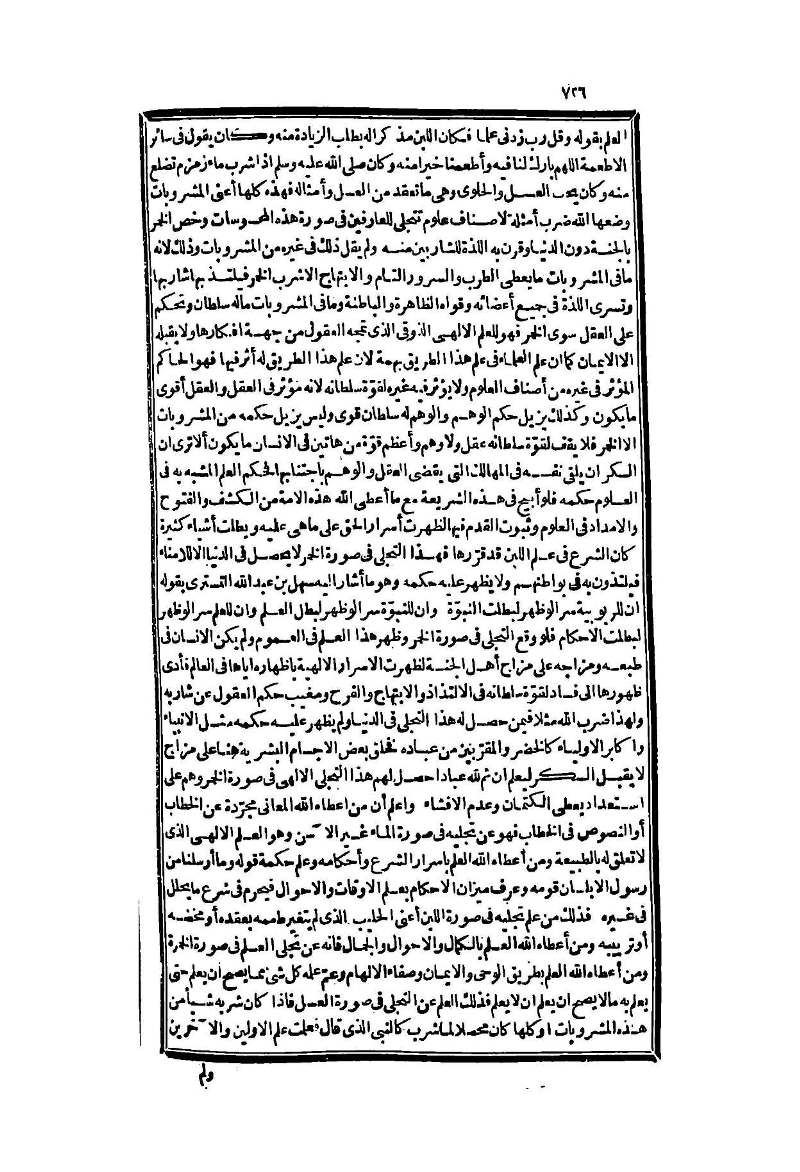 ٧٢٦
العلم بقوله وقل رب زدنى علما فكان اللبن مذ كراله بطلب الزيادة منه وكان يقول فى سائر
الاطعمة اللهم بارك لنا فيه وأطعمنا خيرا منه وكان صلى الله عليه وسلم اذا شرب ماء زمزم تضلع
منه وكان يحب العسل والحلوى وهى ما تعقد من العسل وأمثاله فهذه كلها أعنى المشروبات
وضعها الله ضرب أمثلة لاصناف علوم تتجلى للعارفين فى صورة هذه المحسوسات وخص الخمر
بالجنة دون الدنيا وقرن به اللذة للشاربين منه ولم يقل ذلك فى غيره من المشروبات وذلك لانه
ما فى المشروبات ما يعطى الطرب والسرور التام والابتهاج الا شرب الخمر فيلتذ بها شاربها
وتسرى اللذة فى جميع أعضائه وقواه الظاهرة والباطنة وما فى المشروبات ماله سلطان وتحكم
على العقل سوى الخمر فهو للعلم الالهى الذوقى الذى تمجه العقول من جهة افكارها ولا يقبله
الا الايمان كما ان علم العلماء فى علم هذا الطريق بهمة لان علم هذا الطريق له أثر فيها فهو الحاكم
المؤثر فى غيره من أصناف العلوم ولا يؤثر فيه غيره لقوة سلطانه لانه مؤثر فى العقل والعقل أقوى
ما يكون وكذلك يزيل حكم الوهم والوهم له سلطان قوى وليس يزيل حكمه من المشروبات
الا الخمر فلا يقف لقوة سلطانه عقل ولا وهم وأعظم قوة من هاتين فى الانسان ما يكون ألا ترى ان
السكران يلقى نفسه فى المهالك التى يقضى العقل والوهم باجتنابها لحكم العلم المشبه به فى
العلوم حكمه فلو أبيح فى هذه الشريعة مع ما أعطى الله هذه الامة من الكشف والفتوح
والامداد فى العلوم وثبوت القدم فيها لظهرت أسرار الحق على ما هى عليه وبطلت أشياء كثيرة
كان الشرع فى علم اللبن قد قررها فهذا التجلى فى صورة الخمر لا يحصل فى الدنيا الا للامناء
فيلتذون به فى بواطنهم ولا يظهر عليه حكمه وهو ما أشار اليه سهل بن عبد الله التسترى بقوله
ان للربوبية سر الو ظهر لبطلت النبوّة وان للنبوّة سر الو ظهر لبطل العلم وان للعلم سر الو ظهر
لبطلت الاحكام فلو وقع التجلى فى صورة الخمر وظهر هذا العلم فى العموم ولم يكن الانسان فى
طبعه ومزاجه على مزاج أهل الجنة لظهرت الاسرار الالهية باظهاره اياها فى العالم فأدى
ظهورها الى فساد لقوة سلطانه فى الالتذاذ والابتهاج والفرح ومغيب حكم العقول عن شاربه
ولهذا ضرب الله مثلا فيمن حصل له هذا التجلى فى الدنيا ولم يظهر عليه حكمه مثل الانبياء
وا كابر الاولياء كالخضر والمقربين من عباده فخلق بعض الاجسام البشرية هنا على مزاج
لا يقبل السكر ليعلم ان ثم لله عباد احصل لهم هذا التجلى الالهى فى صورة الخمر وهم على
استعداد يعطى الكتمان وعدم الافشاء واعلم أن من اعطاه الله المعانى مجرّدة عن الخطاب
أو النصوص فى الخطاب فهو عن تجليه فى صورة الماء غير الآسن وهو العلم الالهى الذى
لا تعلق له بالطبيعة ومن أعطاه الله العلم باسرار الشرع وأحكامه وعلم حكمة قوله وما أرسلنا من
رسول الا بلسان قومه وعرف ميزان الاحكام بعلم الاوقات والاحوال فيحرم فى شرع ما يحلل
فى غيره فذلك من علم تجليه فى صورة اللبن أعنى الحليب الذى لم يتغير طعمه بعقده أو مخضه
أو تربيبه ومن أعطاه الله العلم بالكمال والاحوال والجمال فانه عن تجلى العلم فى صورة الخمرة
ومن أعطاه الله العلم بطريق الوحى والايمان وصفاء الالهام وعم علمه كل شئ مما يصح ان يعلم حتى
يعلم به ما لا يصح ان يعلم ان لا يعلم فذلك العلم عن التجلى فى صورة العسل فاذا كان شربه شيأ من
هذه المشروبات اوكلها كان محصلا لما شرب كالنبى الذى قال فعلمت علم الاولين والآخرين
ولم